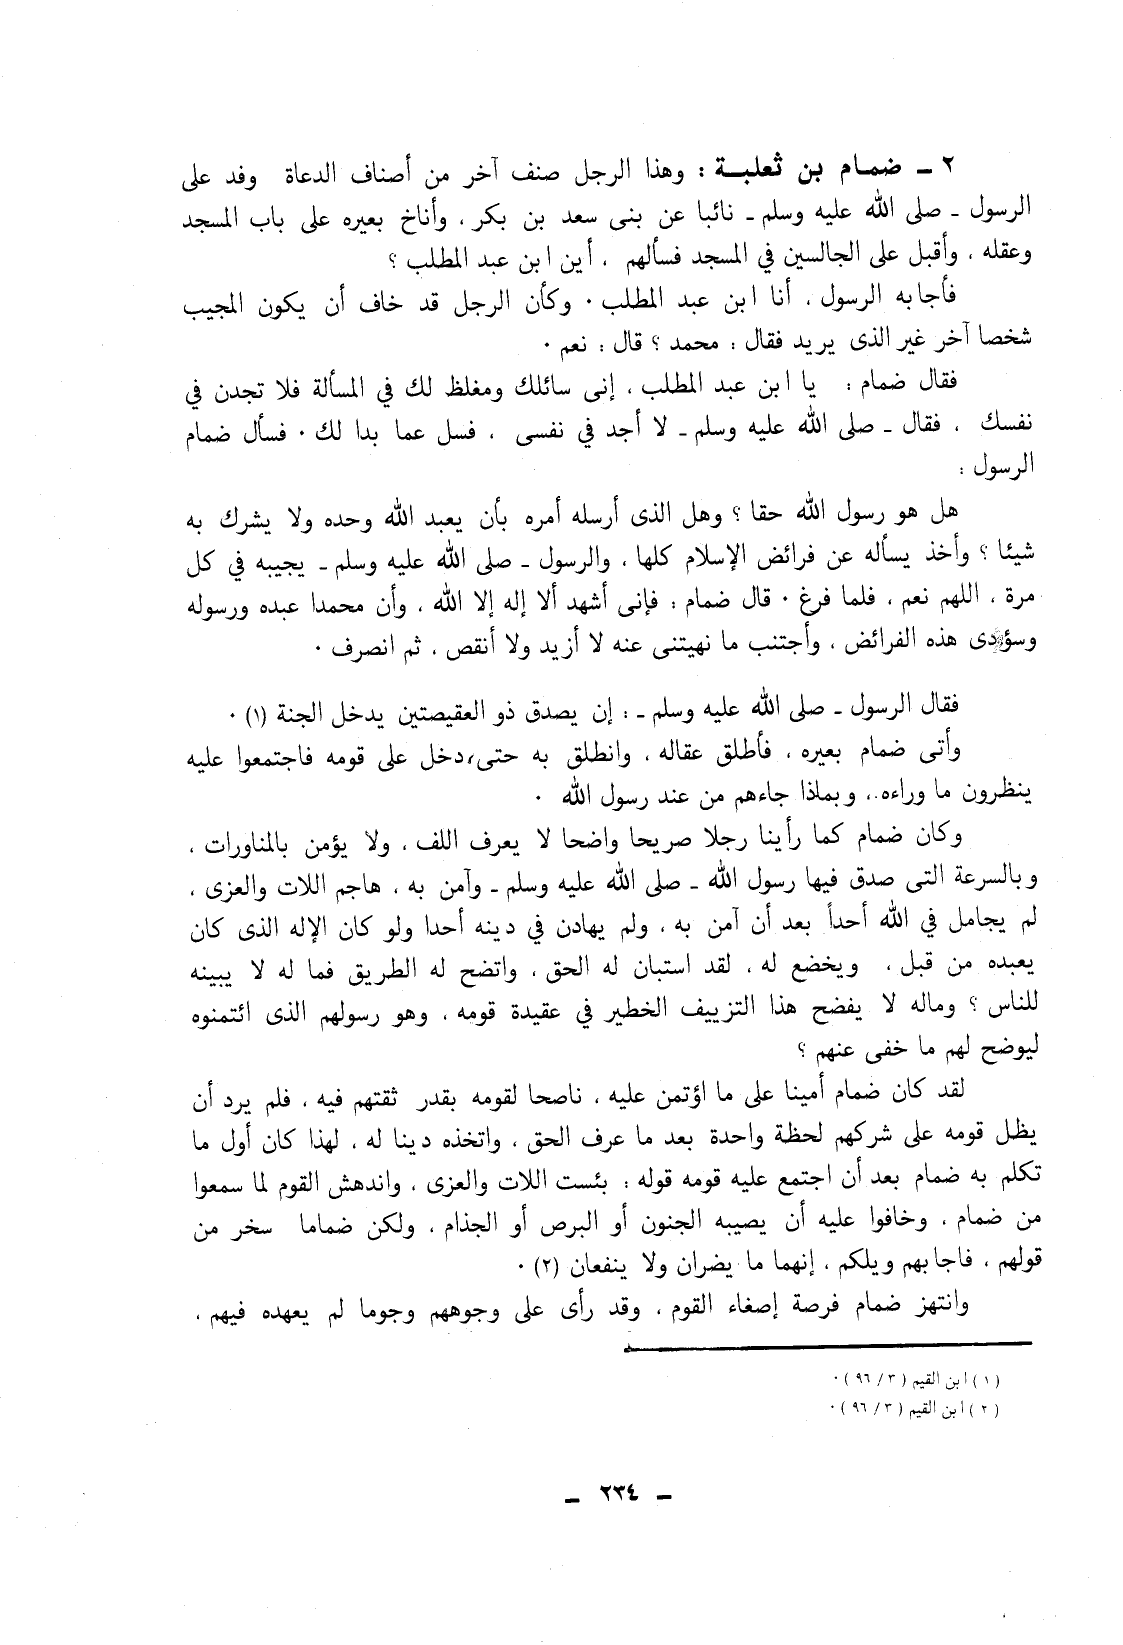 ٢ ـ ضمام بن ثعلبة : وهذا الرجل صنف آخر من أصناف الدعاة وفد على
الرسول ـ صلى الله عليه وسلم ـ نائبا عن بنى سعد بن بكر ، وأناخ بعيره على باب المسجد
وعقله ، وأقبل على الجالسين في المسجد فسألهم ، أين ابن عبد المطلب ؟
فأجابه الرسول ، أنا ابن عبد المطلب ٠ وكأن الرجل قد خاف أن يكون المجيب
شخصا آخر غير الذى يريد فقال : محمد ؟ قال : نعم ٠
فقال ضمام : يا ابن عبد المطلب ، إنى سائلك ومغلظ لك في المسألة فلا تجدن في
نفسك ، فقال ـ صلى الله عليه وسلم ـ لا أجد في نفسى ، فسل عما بدا لك ٠ فسأل ضمام
الرسول :
هل هو رسول الله حقا ؟ وهل الذى أرسله أمره بأن يعبد الله وحده ولا يشرك به
شيئا ؟ وأخذ يسأله عن فرائض الإسلام كلها ، والرسول ـ صلى الله عليه وسلم ـ يجيبه في كل
مرة ، اللهم نعم ، فلما فرغ ٠ قال ضمام : فإنى أشهد ألا إله إلا الله ، وأن محمدا عبده ورسوله
وسؤدى هذه الفرائض ، وأجتنب ما نهيتنى عنه لا أزيد ولا أنقص ، ثم انصرف ٠
فقال الرسول ـ صلى الله عليه وسلم ـ : إن يصدق ذو العقيصتين يدخل الجنة (١) ٠
وأتى ضمام بعيره ، فأطلق عقاله ، وانطلق به حتى دخل على قومه فاجتمعوا عليه
ينظرون ما وراءه ، وبماذا جاءهم من عند رسول الله ٠
وكان ضمام كما رأينا رجلا صريحا واضحا لا يعرف اللف ، ولا يؤمن بالمناورات ،
وبالسرعة التى صدق فيها رسول الله ـ صلى الله عليه وسلم ـ وآمن به ، هاجم اللات والعزى ،
لم يجامل في الله أحدأ بعد أن آمن به ، ولم يهادن في دينه أحدا ولو كان الإله الذى كان
يعبده من قبل ، ويخضع له ، لقد استبان له الحق ، واتضح له الطريق فما له لا يبينه
للناس ؟ وماله لا يفضح هذا التزييف الخطير في عقيدة قومه ، وهو رسولهم الذى ائتمنوه
ليوضح لهم ما خفى عنهم ؟
لقد كان ضمام أمينا على ما اؤتمن عليه ، ناصحا لقومه بقدر ثقتهم فيه ، فلم يرد أن
يظل قومه على شركهم لحظة واحدة بعد ما عرف الحق ، واتخذه دينا له ، لهذا كان أول ما
تكلم به ضمام بعد أن اجتمع عليه قومه قوله : بئست اللات والعزى ، واندهش القوم لما سمعوا
من ضمام ، وخافوا عليه أن يصيبه الجنون أو البرص أو الجذام ، ولكن ضماما سخر من
قولهم ، فاجابهم ويلكم ، إنهما ما يضران ولا ينفعان (٢) ٠
وانتهز ضمام فرصة إصغاء القوم ، وقد رأى على وجوههم وجوما لم يعهده فيهم ،
(١) ابن القيم (٣/ ٩٦) ٠
(٢) ابن القيم (٣/ ٩٦) ٠
ـ ٢٣٤ ـ